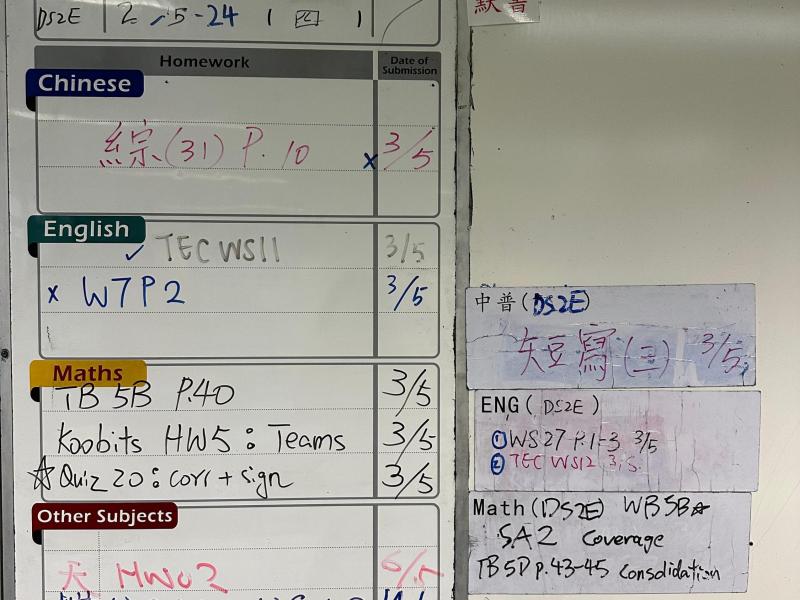 DS2E 2-5-24 1 四 1
Homework Date of Submission
Chinese
綜(31) P.10 x 3/5
English
✓ TEC WS11 3/5
x W7P2 3/5
Maths
TB 5B P.40 3/5
Koobits HW5: Teams 3/5
☆ Quiz 20: corr + sign 3/5
Other Subjects
HW02 6/5
默書
中普(DS2E)
短寫(三) 3/5
ENG(DS2E)
① WS27 P.1-3 3/5
② TEC WS12 3/5
Math(DS2E) WB5B☆
SA2 Coverage
TB 5D p.43-45 Consolidation